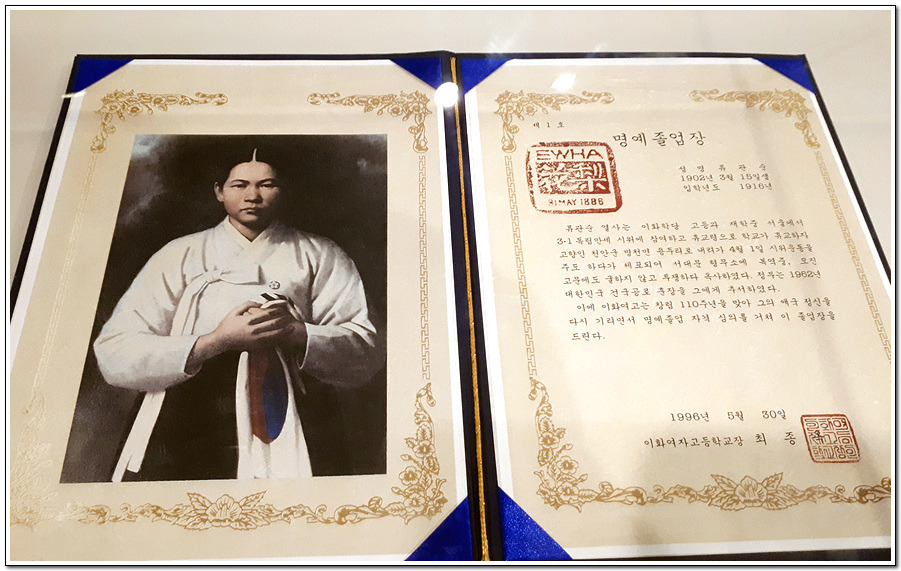 제 1 호
명예졸업장
EWHA
梨花
31 MAY 1886
성 명 류 관 순
1902년 3월 15일생
입학년도 1916년
류관순 열사는 이화학당 고등과 재학중 서울에서
3·1 독립만세 시위에 참여하고 휴교령으로 학교가 휴교하자
고향인 천안군 병천면 용두리로 내려가 4월 1일 시위운동을
주도 하다가 체포되어 서대문 형무소에 복역중, 모진
고문에도 굴하지 않고 투쟁하다 옥사하였다. 정부는 1962년
대한민국 건국공로 훈장을 그에게 추서하였다.
이에 이화여고는 창립 110주년을 맞아 그의 애국 정신을
다시 기리면서 명예졸업 자격 심의를 거쳐 이 졸업장을
드린다.
1996년 5월 30일
이화여자고등학교장 최 종